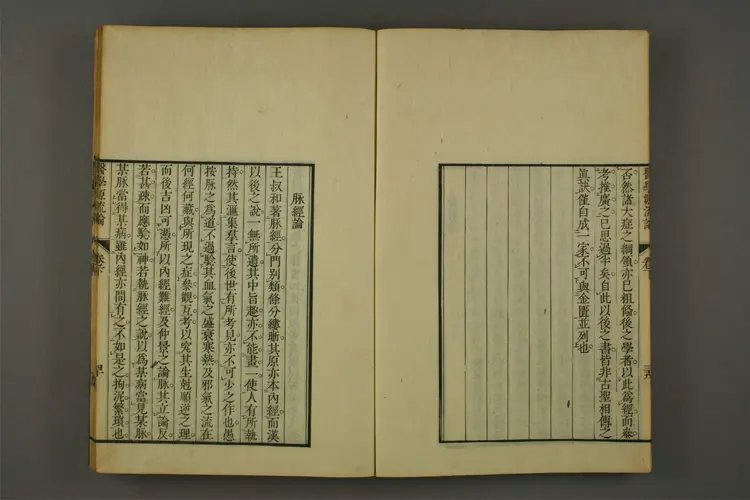 醫學源流論
否然諸大症之綱領亦已粗備後之學者以此爲經而參
考推廣之已思過半矣自此以後之書皆非古聖相傳之
眞訣僅自成一家不可與金匱並列也
脉經論
王叔和著脉經分門別類條分縷晰其原亦本內經而漢
以後之說一無所遺其中旨趣亦不能畫一使人有所執
持然其滙集羣言使後世有所考見亦不可少之作也愚
按脉之爲道不過驗其血氣之盛衰寒熱及邪氣之流在
何經何臟與所現之症參觀互考以究其生尅順逆之理
而後吉凶可憑所以內經難經及仲景之論脉其立論反
若甚疎而應驗如神若執脉經之說以爲某病當見某脉
某脉當得某病雖內經亦間有之不如是之拘泥繁瑣也
醫學源流論 卷下